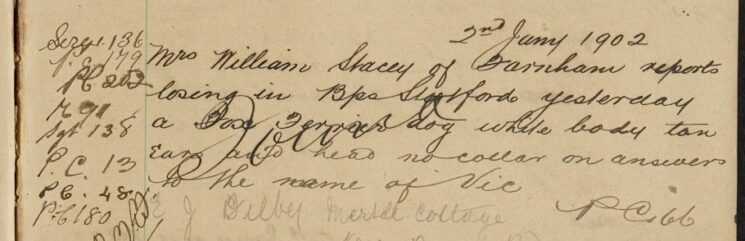 2nd Jany 1902
Mrs William Stacey of Farnham reports
losing in Bps Stortford yesterday
a Fox Terrier dog white body tan
Ears and head no collar on answers
to the name of Vic
P Cobb
Sergt 136
179
PC 202
91
Sgt 138
P.C. 13
P.C. 48
P.C 180
Found
E J Bilbey Myrtle Cottage